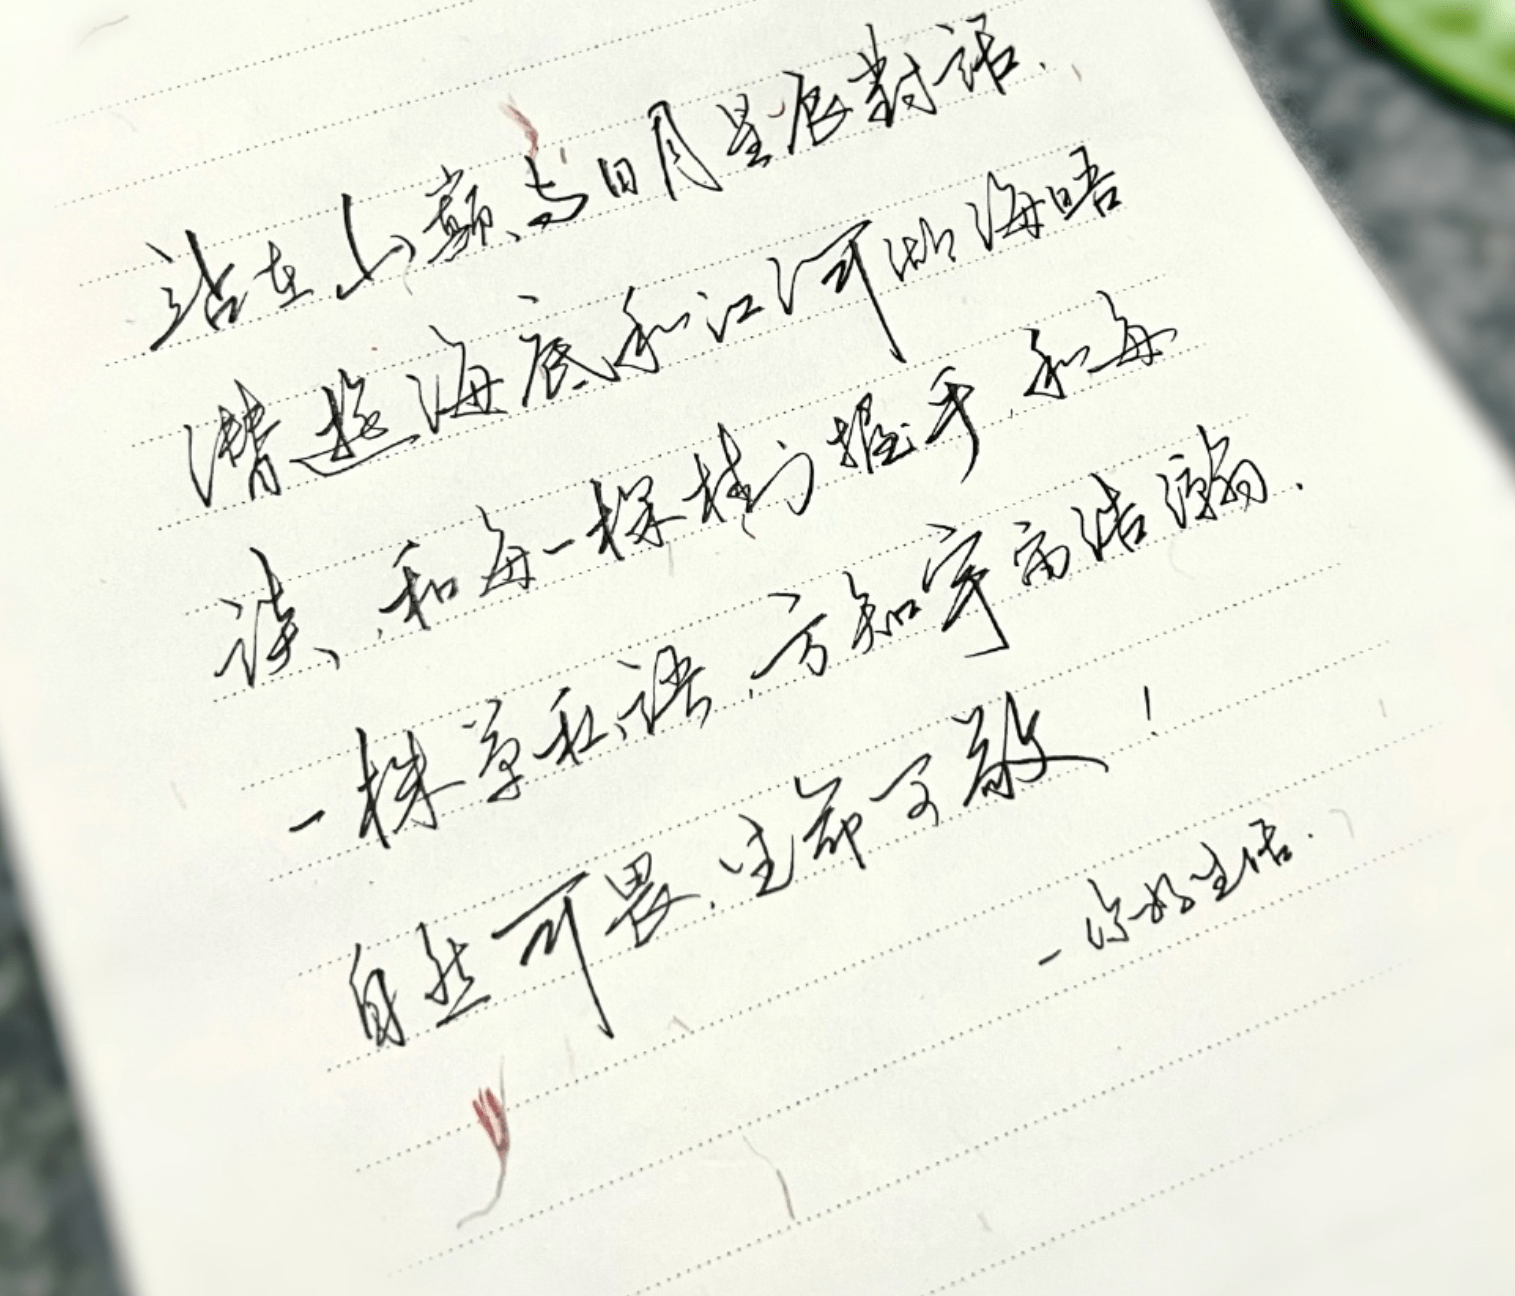 站在山巅、与日月星辰對话.
潜遊海底和江河湖海晤
谈、和每一棵树握手,和每
一株草私语,方知宇宙浩瀚.
自然可畏,生命可敬!
—你好生活.